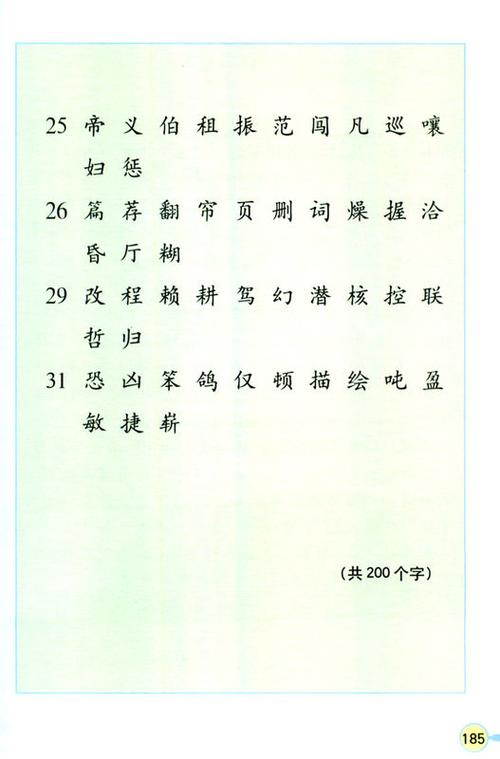 25 帝 义 伯 租 振 范 闯 凡 巡 嚷
妇 惩
26 篇 荐 翻 帘 页 删 词 燥 握 洽
昏 厅 糊
29 改 程 赖 耕 驾 幻 潜 核 控 联
哲 归
31 恐 凶 笨 鸽 仅 顿 描 绘 吨 盈
敏 捷 崭
(共 200 个字)
185